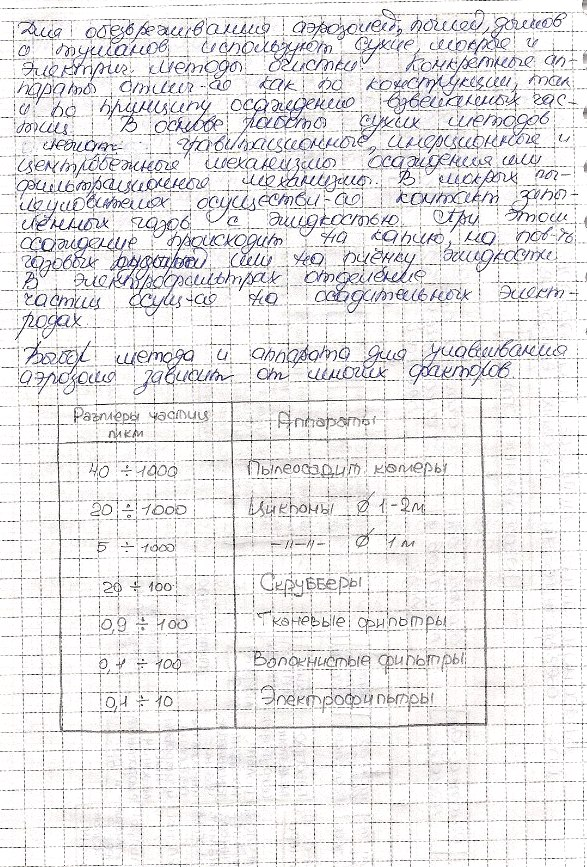 Для обезвреживания аэрозолей, пылей, дымов
и туманов используют сухие, мокрые и
электрич. методы очистки. Конкретные ап-
параты отлич-ся как по конструкции, так
и по принципу осаждению взвешанных час-
тиц. В основе работы сухих методов
лежат гравитационные, инерционные и
центробежные механизмы осаждения или
фильтрационные механизмы. В мокрых пы-
леуловителях осуществл-ся контакт запы-
ленных газов с жидкостью. При этом
осаждение происходит на каплю, на пов-ть
газовых или на пленку жидкости.
В электрофильтрах отделение
частиц осущ-ся на осадительных элект-
родах.
Выбор метода и аппарата для улавливания
аэрозоля зависит от многих факторов.
Размеры частиц Аппараты
мкм
40 ÷ 1000 Пылеосадит камеры
20 ÷ 1000 Циклоны ∅ 1-2м
5 ÷ 1000 -//-//- ∅ 1м
20 ÷ 100 Скрубберы
0,9 ÷ 100 Тканевые фильтры
0,1 ÷ 100 Волокнистые фильтры
0,1 ÷ 10 Электрофильтры